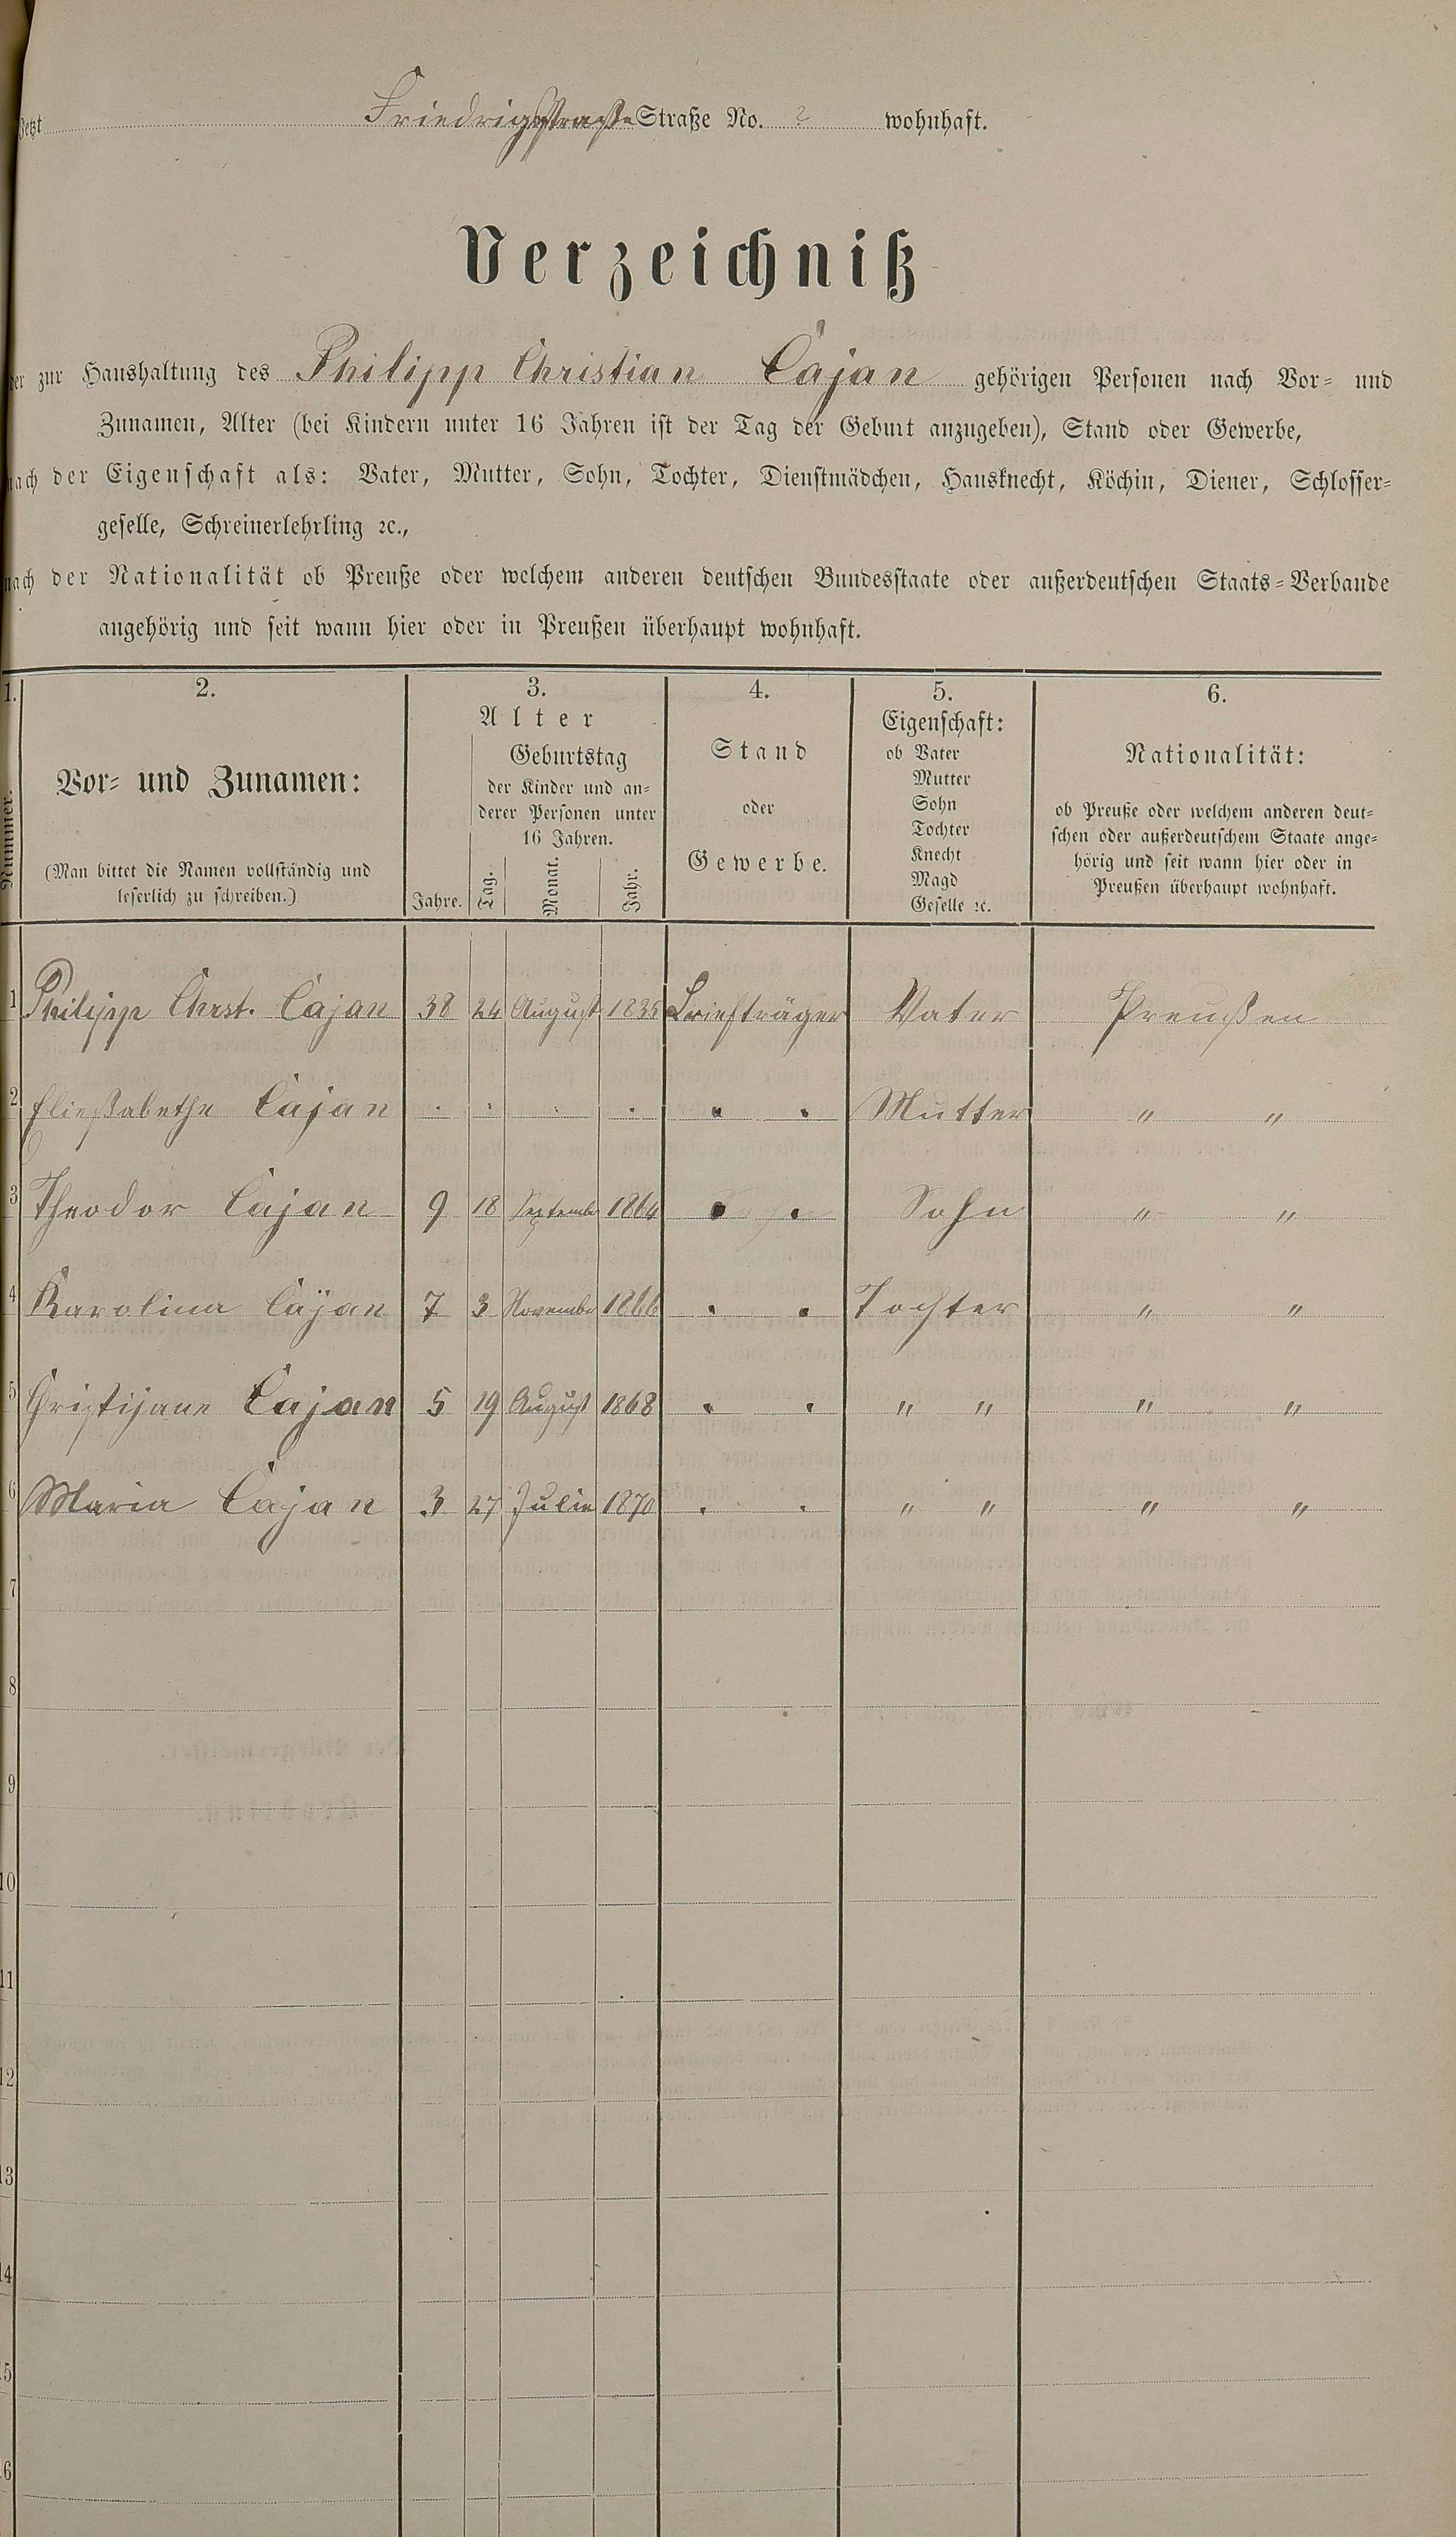 Jetzt Friedrigstraße Straße No. 2 wohnhaft.
Verzeichniß
der zur Haushaltung des Philipp Christian Cajan gehörigen Personen nach Vor- und
Zunamen, Alter (bei Kindern unter 16 Jahren ist der Tag der Geburt anzugeben), Stand oder Gewerbe,
nach der Eigenschaft als: Vater, Mutter, Sohn, Tochter, Dienstmädchen, Hausknecht, Köchin, Diener, Schlosser-
geselle, Schreinerlehrling ꝛc.,
nach der Nationalität ob Preuße oder welchem anderen deutschen Bundesstaate oder außerdeutschen Staats-Verbande
angehörig und seit wann hier oder in Preußen überhaupt wohnhaft.
1.
Nummer.
2.
Vor- und Zunamen:
(Man bittet die Namen vollständig und
leserlich zu schreiben.)
3.
Alter
Jahre.
Geburtstag
der Kinder und an-
derer Personen unter
16 Jahren.
Tag.
Monat.
Jahr.
4.
Stand
oder
Gewerbe.
5.
Eigenschaft:
ob Vater
Mutter
Sohn
Tochter
Knecht
Magd
Geselle ꝛc.
6.
Nationalität:
ob Preuße oder welchem anderen deut-
schen oder außerdeutschem Staate ange-
hörig und seit wann hier oder in
Preußen überhaupt wohnhaft.
1 Philipp Chrst. Cajan 38 24 August 1835 Briefträger Vater Preußen
2 Eliesabethe Cajan . . . . . . Mutter " "
3 Theodor Cajan 9 18 Septembr 1864 . . Sohn " "
4 Karolina Cajan 7 3 Novembr 1866 . . Tochter " "
5 Cristijane Cajan 5 19 August 1868 . . " " " "
6 Maria Cajan 3 27 Julie 1870 . . " " " "
7
8
9
10
11
12
13
14
15
16